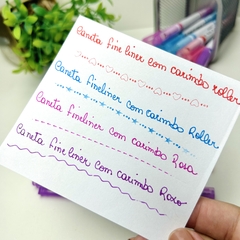 Caneta fine liner com carimbo roller
Caneta fineliner com carimbo Roller
Caneta fineliner com carimbo Rosa
Caneta fine liner com carimbo Roxo